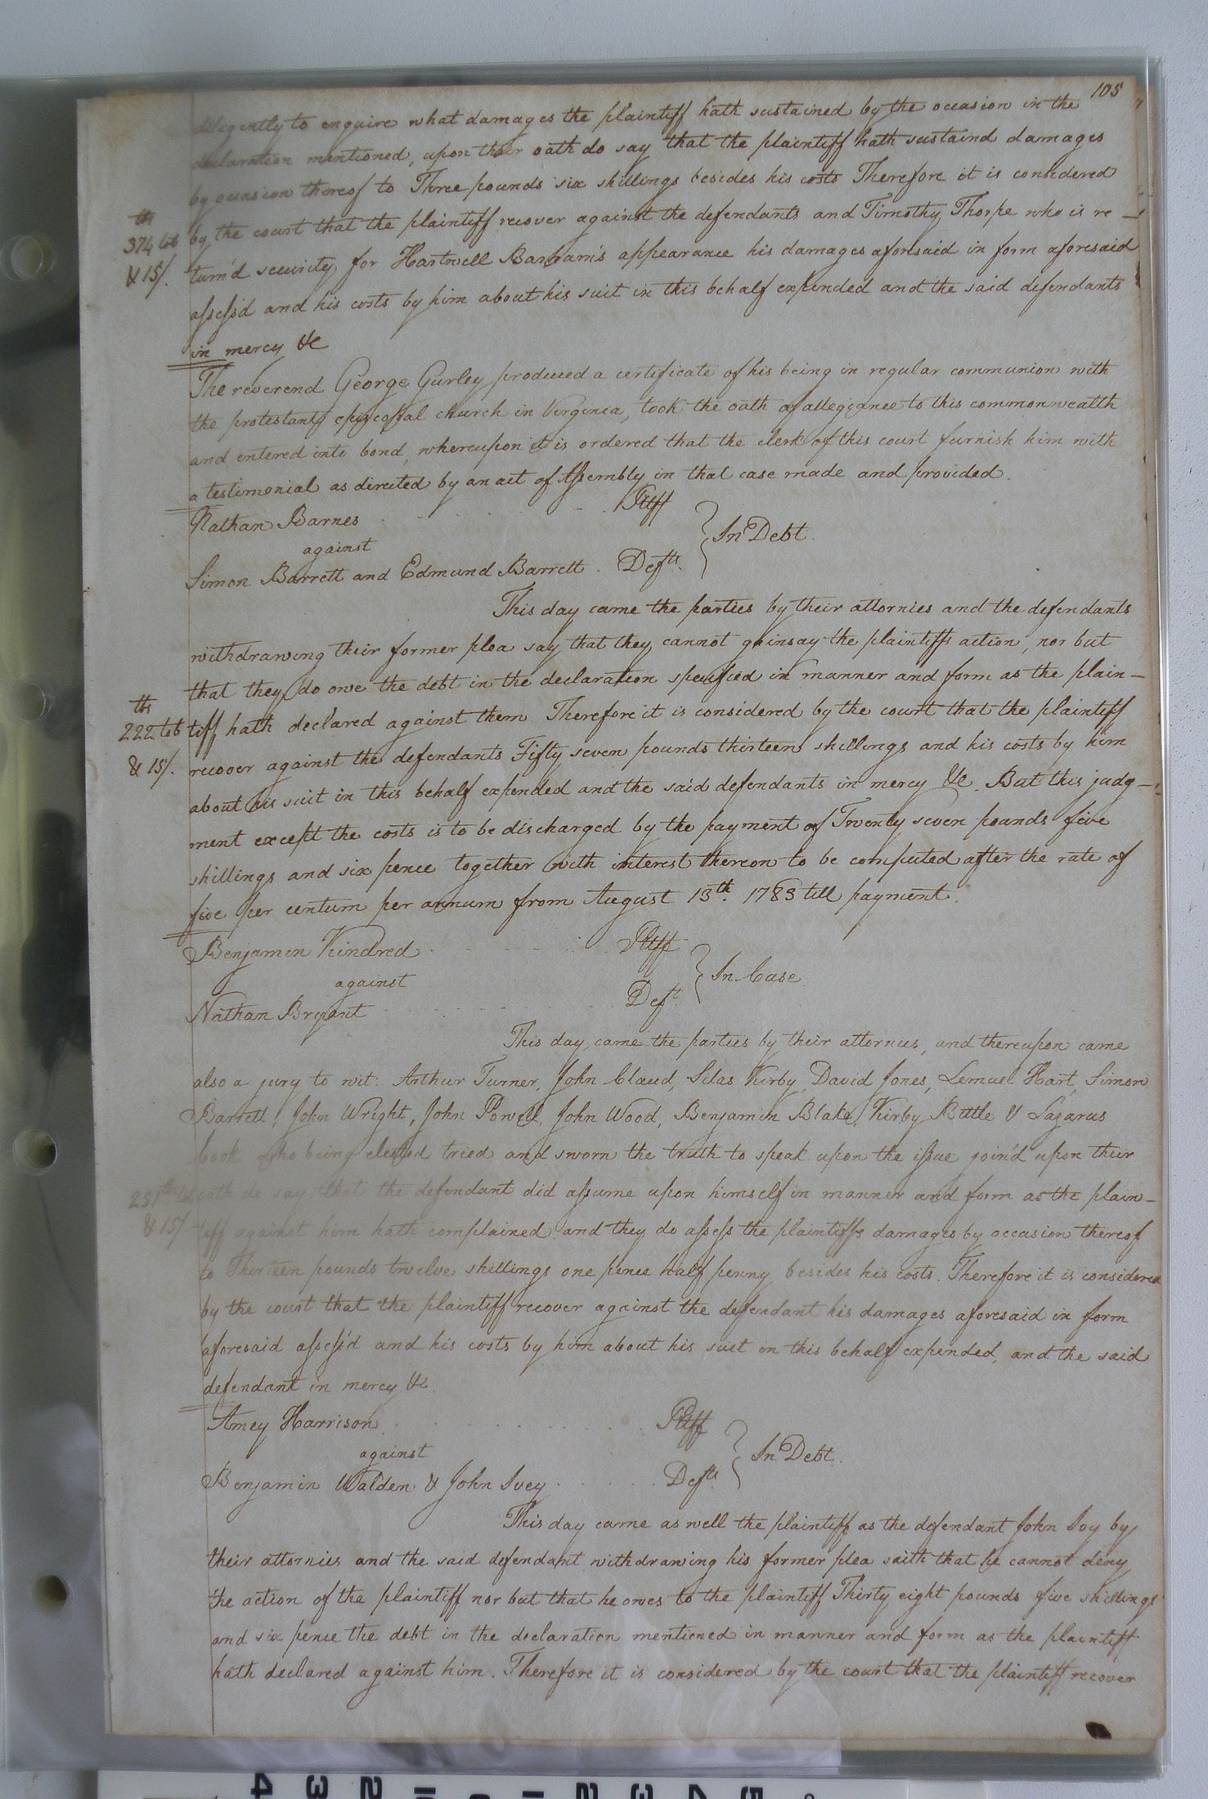 105
diligently to enquire what damages the plaintiff hath sustained by the occasion in the
declaration mentioned, upon their oath do say that the plaintiff hath sustaind damages
by occasion thereof to Three pounds six shillings besides his costs Therefore it is considered
by the court that the plaintiff recover against the defendants and Timothy Thorpe who is re-
th
374 tob
& 15/.
turn'd security for Hartwell Barham's appearance his damages aforesaid in form aforesaid
assess'd and his costs by him about his suit in this behalf expended and the said defendants
in mercy &c
The reverend George Gurley produced a certificate of his being in regular communion with
the protestant episcopal church in Virginia, took the oath of allegiance to this commonwealth
and entered into bond, whereupon it is ordered that the clerk of this court furnish him with
a testimonial as directed by an act of Assembly in that case made and provided.
Nathan Barnes Pltff
against
In Debt
Simon Barrett and Edmund Barrett. Defts.
This day came the parties by their attornies and the defendants
withdrawing their former plea say that they cannot gainsay the plaintiffs action, nor but
that they do owe the debt in the declaration specified in manner and form as the plain-
th
222 tob
& 15/.
tiff hath declared against them Therefore it is considered by the court that the plaintiff
recover against the defendants Fifty seven pounds thirteen shillings and his costs by him
about his suit in this behalf expended and the said defendants in mercy &c. But this judg-
ment except the costs is to be discharged by the payment of Twenty seven pounds five
shillings and six pence together with interest thereon to be computed after the rate of
five per centum per annum from August 13th. 1783 till payment.
Benjamin Kindred Pltff
against
In Case
Nathan Bryant Deft.
This day came the parties by their attornies, and thereupon came
also a jury to wit: Arthur Turner, John Claud, Silas Kirby, David Jones, Lemuel Hart, Simon
Barrett, John Wright, John Powell, John Wood, Benjamin Blake, Kirby Bittle & Lazarus
Cook who being elected tried and sworn the truth to speak upon the issue join'd upon their
oath do say that the defendant did assume upon himself in manner and form as the plain-
& 15/
tiff against him hath complained and they do assess the plaintiffs damages by occasion thereof
to Thirteen pounds twelve shillings one pence half penny besides his costs. Therefore it is considered
by the court that the plaintiff recover against the defendant his damages aforesaid in form
aforesaid assess'd and his costs by him about his suit in this behalf expended, and the said
defendant in mercy &c.
Amey Harrison Pltff
against
In Debt.
Benjamin Walden & John Ivey Defts.
This day came as well the plaintiff as the defendant John Ivy by
their attornies and the said defendant withdrawing his former plea saith that he cannot deny
the action of the plaintiff nor but that he owes to the plaintiff Thirty eight pounds five shillings
and six pence the debt in the declaration mentioned in manner and form as the plaintiff
hath declared against him. Therefore it is considered by the court that the plaintiff recover
4 3 2 1 0 1 2 3 4 5